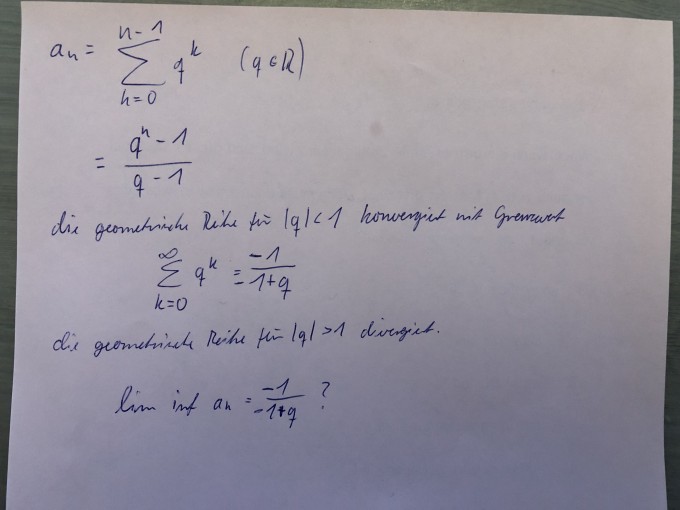 aₙ = ∑_{k=0}^{n-1} q^k (q ∈ ℝ)
= (q^n - 1) / (q - 1)
die geometrische Reihe für |q| < 1 konvergiert mit Grenzwert
∑_{k=0}^{∞} q^k = -1 / (-1+q)
die geometrische Reihe für |q| > 1 divergiert.
lim inf aₙ = -1 / (-1+q) ?